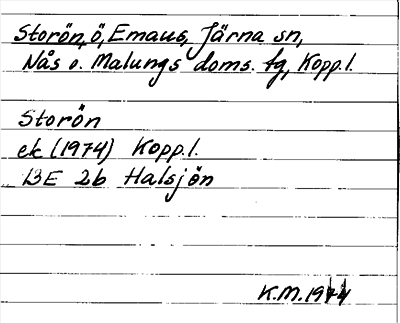 Storön, ö, Emaus, Järna sn,
Nås o. Malungs doms. fg, Kopp.l.
Storön
ek (1974) Kopp.l.
13E 2b Halsjön
K.M. 1974